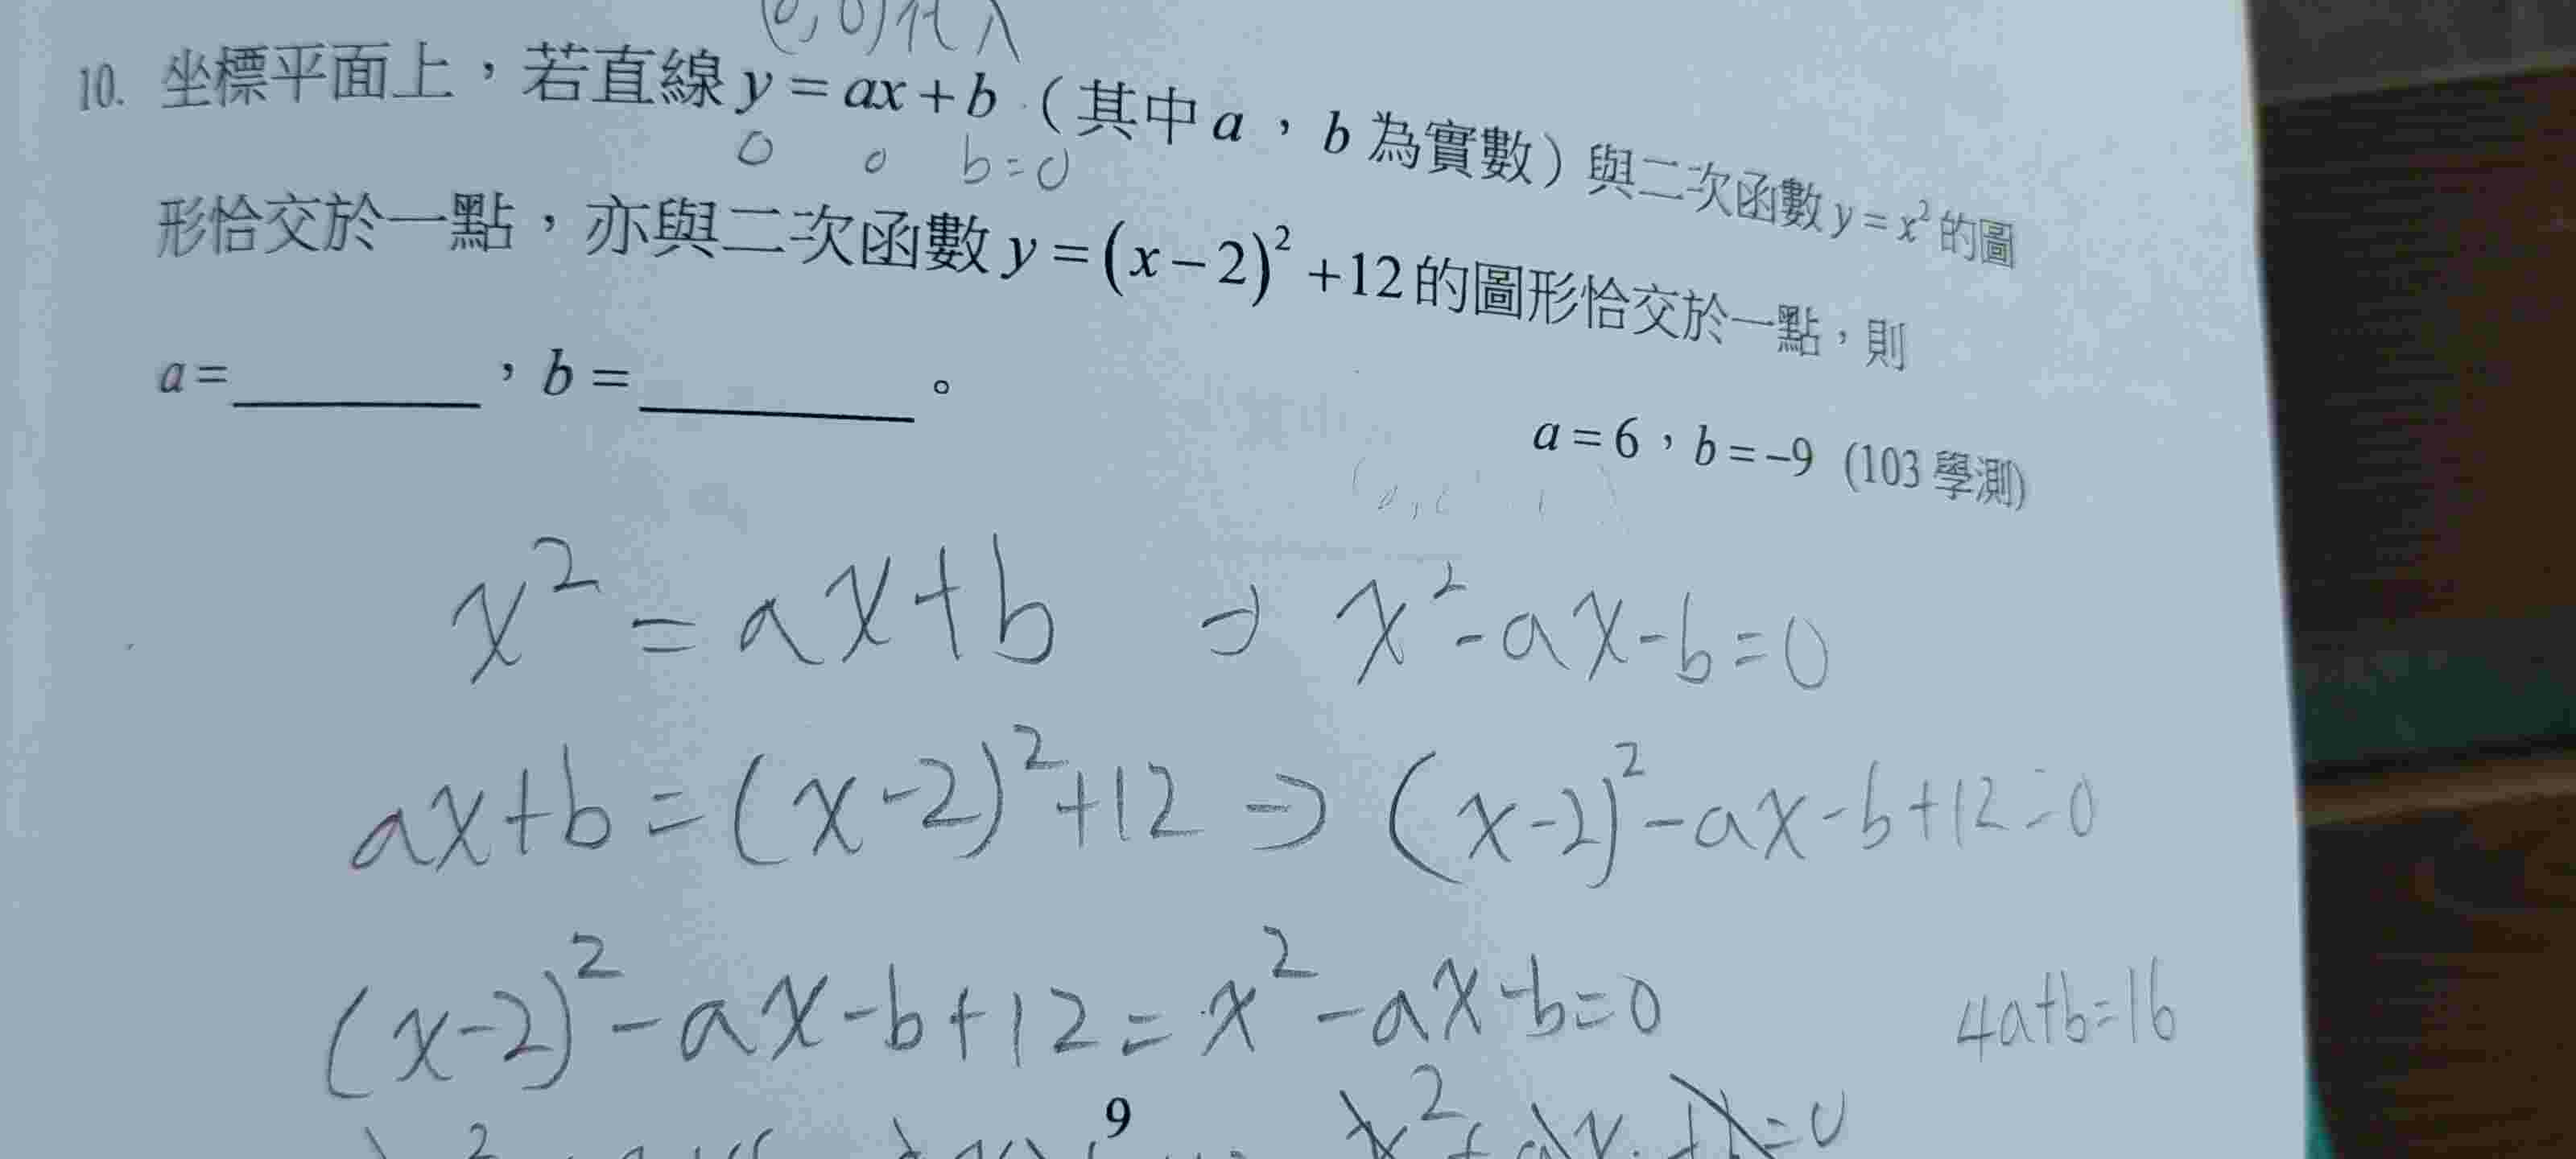 (0,0)代入
10. 坐標平面上，若直線 y = ax + b（其中 a，b 為實數）與二次函數 y = x² 的圖
0 0 b=0
形恰交於一點，亦與二次函數 y = (x − 2)² + 12 的圖形恰交於一點，則
a = ________，b = ________。
a = 6，b = −9 (103 學測)
x² = ax+b ⇒ x²-ax-b=0
ax+b=(x-2)²+12 ⇒ (x-2)²-ax-b+12=0
(x-2)²-ax-b+12=x²-ax-b=0
4a+b=16
9